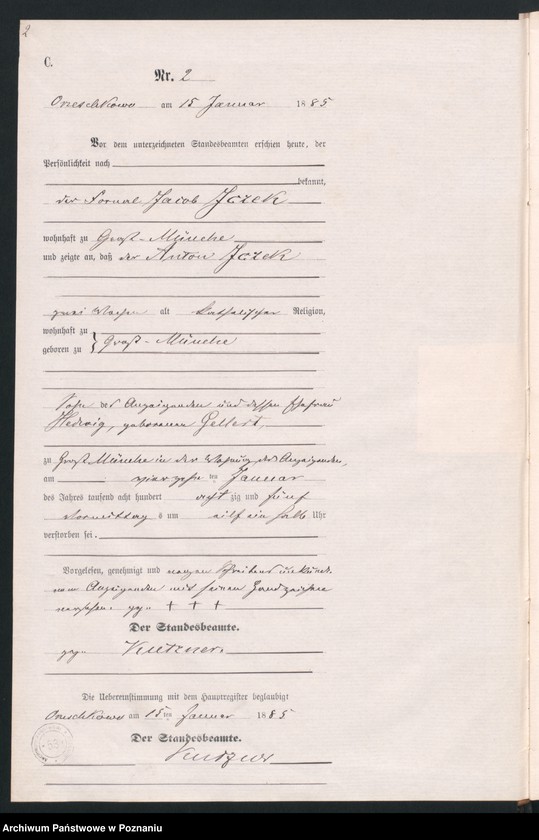 2
C.
Nr. 2
Orzeschkowo am 15 Januar 1885
Vor dem unterzeichneten Standesbeamten erschien heute, der
Persönlichkeit nach
bekannt,
der Fornal Jacob Jczek
wohnhaft zu Groß-Münche
und zeigte an, daß der Anton Jczek
zwei Wochen alt katholischer Religion,
wohnhaft zu
geboren zu } Groß-Münche
Sohn des Anzeigenden und dessen Ehefrau
Hedwig, geborenen Gellert,
zu Groß Münche in der Wohnung des Anzeigenden,
am vierzehn ten Januar
des Jahres tausend acht hundert acht zig und fünf
Vormittags um eilf ein halb Uhr
verstorben sei.
Vorgelesen, genehmigt und wegen Schreibens unkund.
vom Anzeigenden mit seinen Handzeichen
versehen. gez. + + +
Der Standesbeamte.
gez. Kutzner.
Die Uebereinstimmung mit dem Hauptregister beglaubigt
Orzeschkowo am 15 ten Januar 1885
Der Standesbeamte.
Kutzner
Archiwum Państwowe w Poznaniu